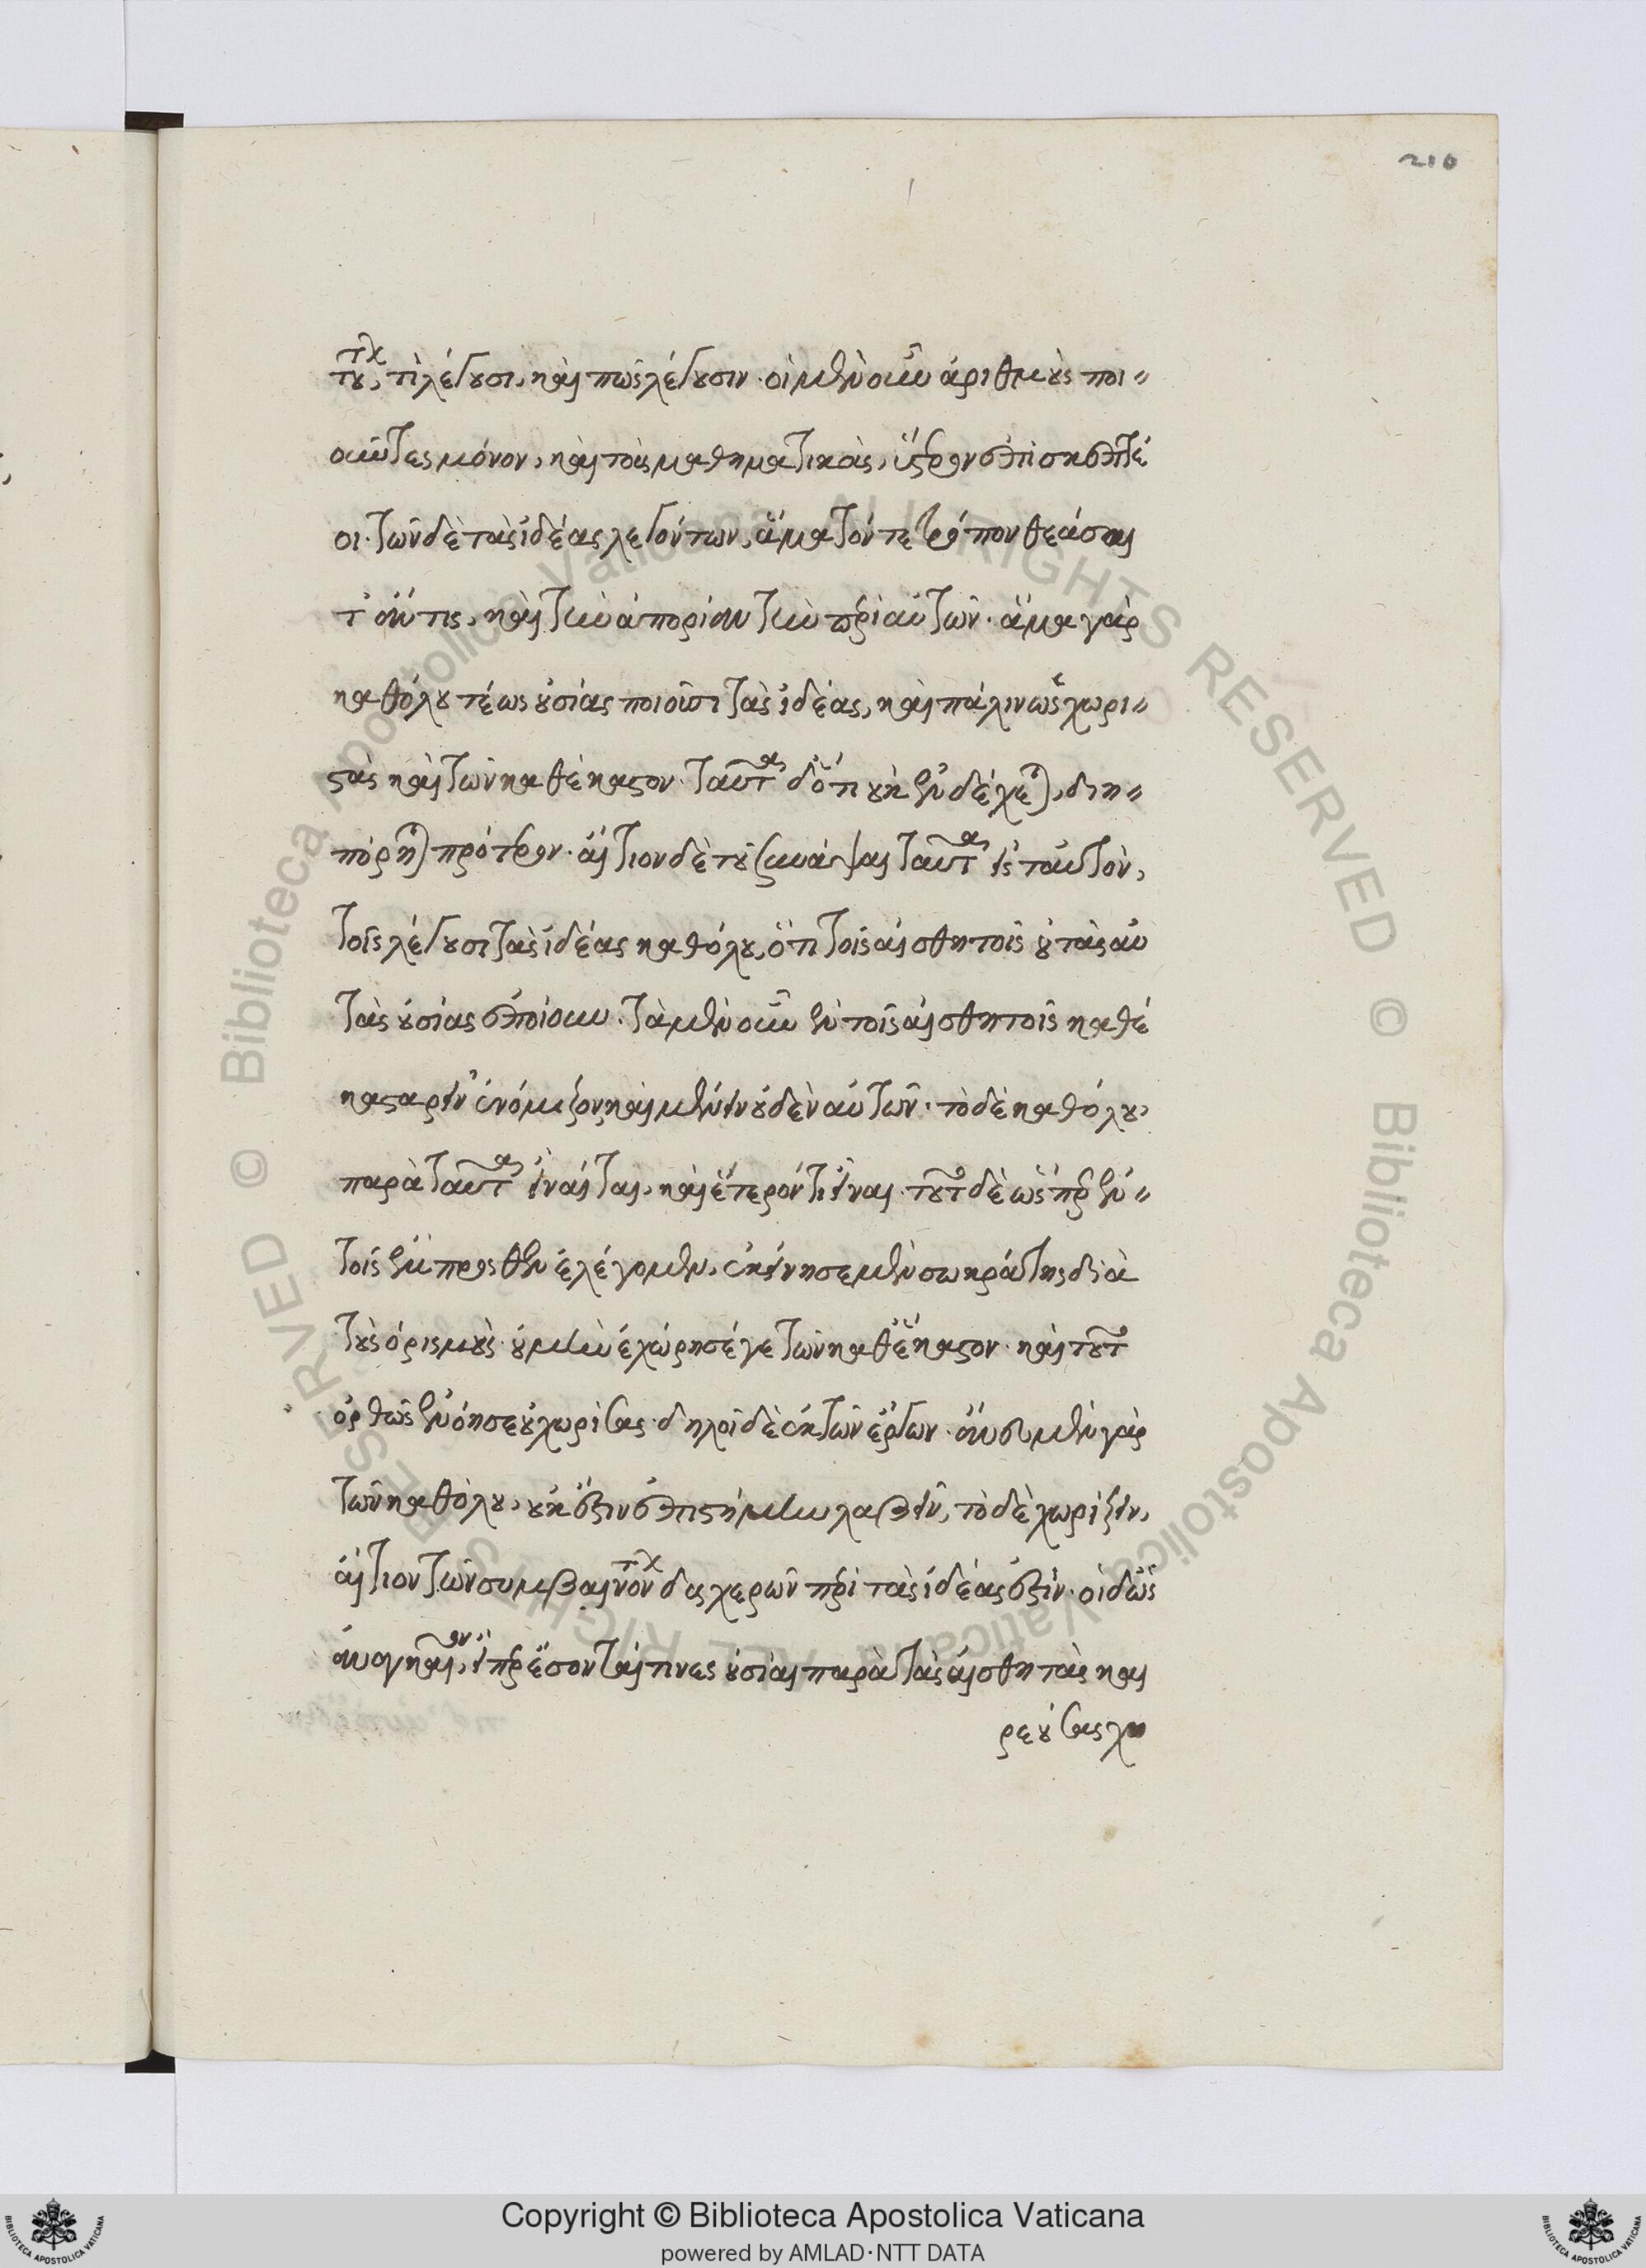 τούτων, τί λέγουσι, καὶ πῶς λέγουσιν. οἱ μὲν οὖν ἀριθμοὺς ποι-
οῦντες μόνον, καὶ τοὺς μαθηματικοὺς, ὕστερον ἐπισκεπτέ
οι. τῶν δὲ τὰς ἰδέας λεγόντων, ἅμα τόν τε τρόπον θεάσαι
τ' ἄν τις, καὶ τὴν ἀπορίαν τὴν περὶ αὐτῶν. ἅμα γὰρ
καθόλου τέ ὡς οὐσίας ποιοῦσι τὰς ἰδέας, καὶ πάλιν ὡς χωρι-
στὰς καὶ τῶν καθέκαστον. ταῦτα δ' ὅτι οὐκ ἐνδέχεται, διη-
πόρηται πρότερον. αἴτιον δὲ τοῦ συνάψαι ταῦτα εἰς ταὐτὸν,
τοῖς λέγουσι τὰς ἰδέας καθόλου, ὅτι τοῖς αἰσθητοῖς οὐ τὰς αὐ
τὰς οὐσίας ἐποίουν. τὰ μὲν οὖν ἐν τοῖς αἰσθητοῖς καθέ
καστα ῥεῖν ἐνόμιζον καὶ μένειν οὐδὲν αὐτῶν. τὸ δὲ καθόλου,
παρὰ ταῦτα εἶναί ται, καὶ ἕτερόν τι εἶναι. τοῦτο δὲ ὥσπερ ἐν-
τοῖς ἔμπροσθεν ἐλέγομεν, ἐκείνησε μὲν σωκράτης διὰ
τοὺς ὁρισμοὺς. οὐ μὴν ἐχώρησέ γε τῶν καθ' ἕκαστον. καὶ τοῦτο
ὀρθῶς ἐνόησε οὐ χωρίσας. δηλοῖ δὲ ἐκ τῶν ἔργων. ἄνευ μὲν γὰρ
τῶν καθόλου, οὐκ ἔστιν ἐπιστήμην λαβεῖν, τὸ δὲ χωρίζειν,
αἴτιον τῶν συμβαινόντων δυσχερῶν περὶ τὰς ἰδέας ἐστίν. οἱ δ' ὡς
ἀναγκαῖον, εἴπερ ἔσονταί τινες οὐσίαι παρὰ τὰς αἰσθητὰς καὶ
ρεούσας χω
210
Copyright © Biblioteca Apostolica Vaticana
powered by AMLAD·NTT DATA
© Biblioteca Apostolica Vaticana ALL RIGHTS RESERVED © Biblioteca Apostolica Vaticana ALL RIGHTS RESERVED